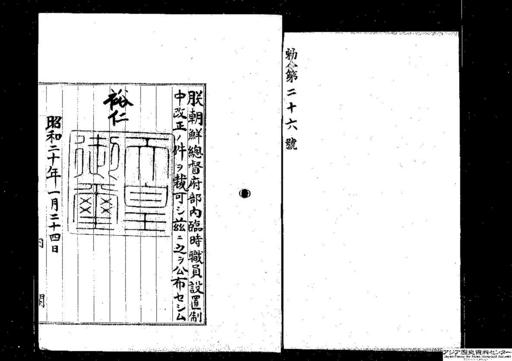 勅令第二十六號
朕朝鮮總督府部內臨時職員設置制
中改正ノ件ヲ裁可シ茲ニ之ヲ公布セシム
裕仁
天皇御璽
昭和二十年一月二十四日
內閣
アジア歴史資料センター